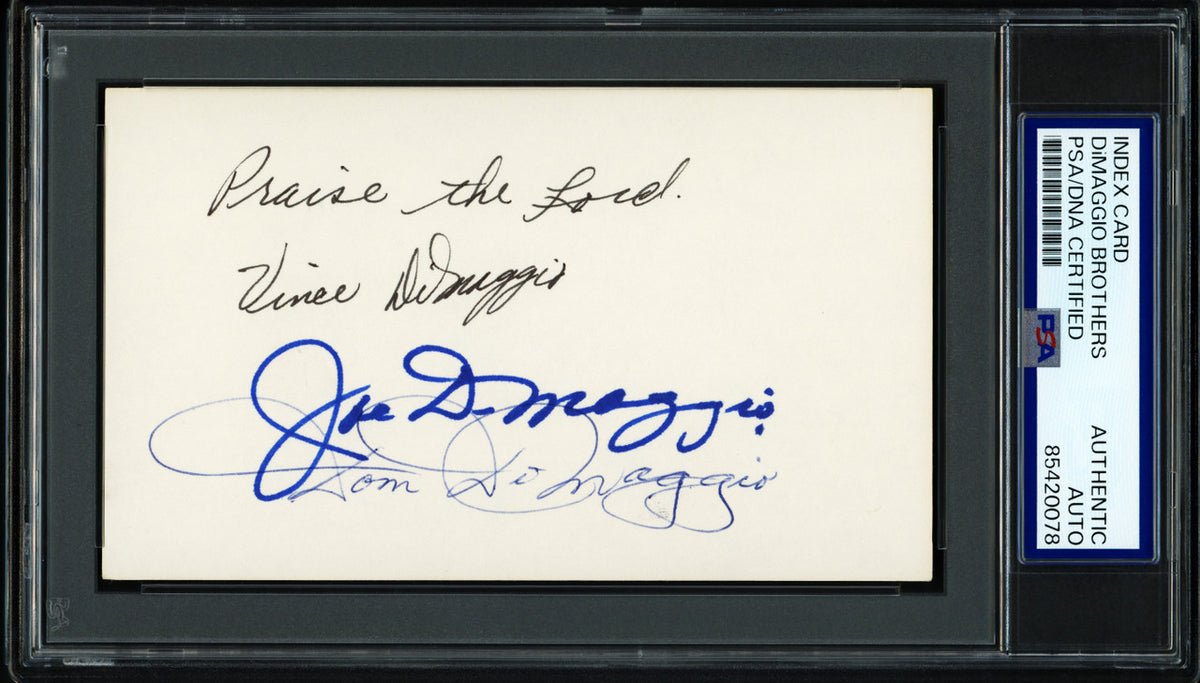 Praise the Lord.
Vince DiMaggio
Joe DiMaggio
Dom DiMaggio
INDEX CARD
DiMAGGIO BROTHERS
PSA/DNA CERTIFIED
PSA
AUTHENTIC
AUTO
85420078